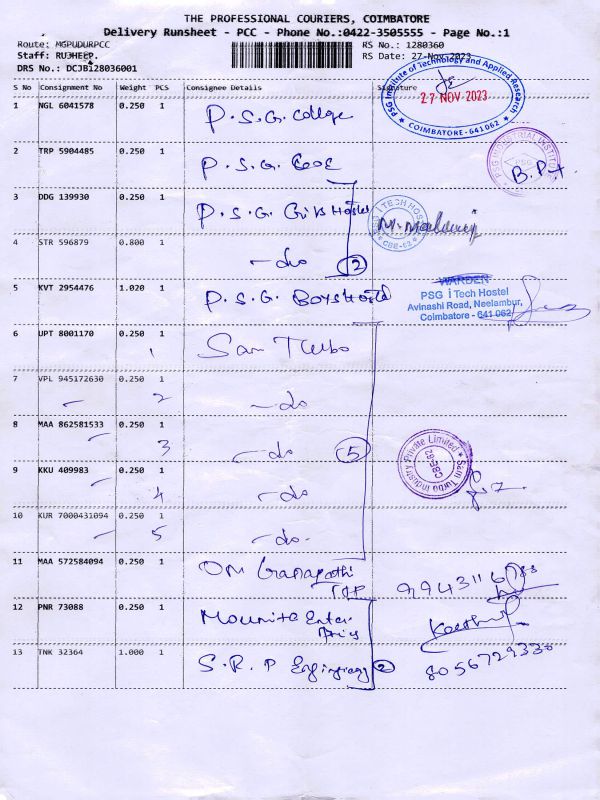 THE PROFESSIONAL COURIERS, COIMBATORE
Delivery Runsheet - PCC - Phone No.:0422-3505555 - Page No.:1
Route: MGPUDURPCC RS No.: 1280360
Staff: RUJHEEP. RS Date: 27-Nov-2023
DRS No.: DCJB128036001
S No Consignment No Weight PCS Consignee Details Signature
PSG Institute of Technology and Applied Research
27 NOV 2023
★ COIMBATORE - 641 062 ★
1 NGL 6041578 0.250 1 P.S.G. College
2 TRP 5904485 0.250 1 P.S.G.
PSG INDUSTRIAL INSTITUTE
PSG
3 DDG 139930 0.250 1 P.S.G. Girls Hostel
PSG i TECH HOSTEL
CBE-62
4 STR 596879 0.800 1 - do 2
5 KVT 2954476 1.020 1 P.S.G. Boys Hostel
WARDEN
PSG i Tech Hostel
Avinashi Road, Neelambur,
Coimbatore - 641 062
6 UPT 8001170 0.250 1 Sam Turbo
1
7 VPL 945172630 0.250 1 - do
2
8 MAA 862581533 0.250 1 - do 5
3
Sam Turbo Industry Private Limited
CBE-62
9 KKU 409983 0.250 1 - do
4
10 KUR 7000431094 0.250 1 - do -
5
11 MAA 572584094 0.250 1 Om Ganapathi
12 PNR 73088 0.250 1 Mounita Enter
prises
13 TNK 32364 1.000 1 S.R.P Engineering 2 8056729330